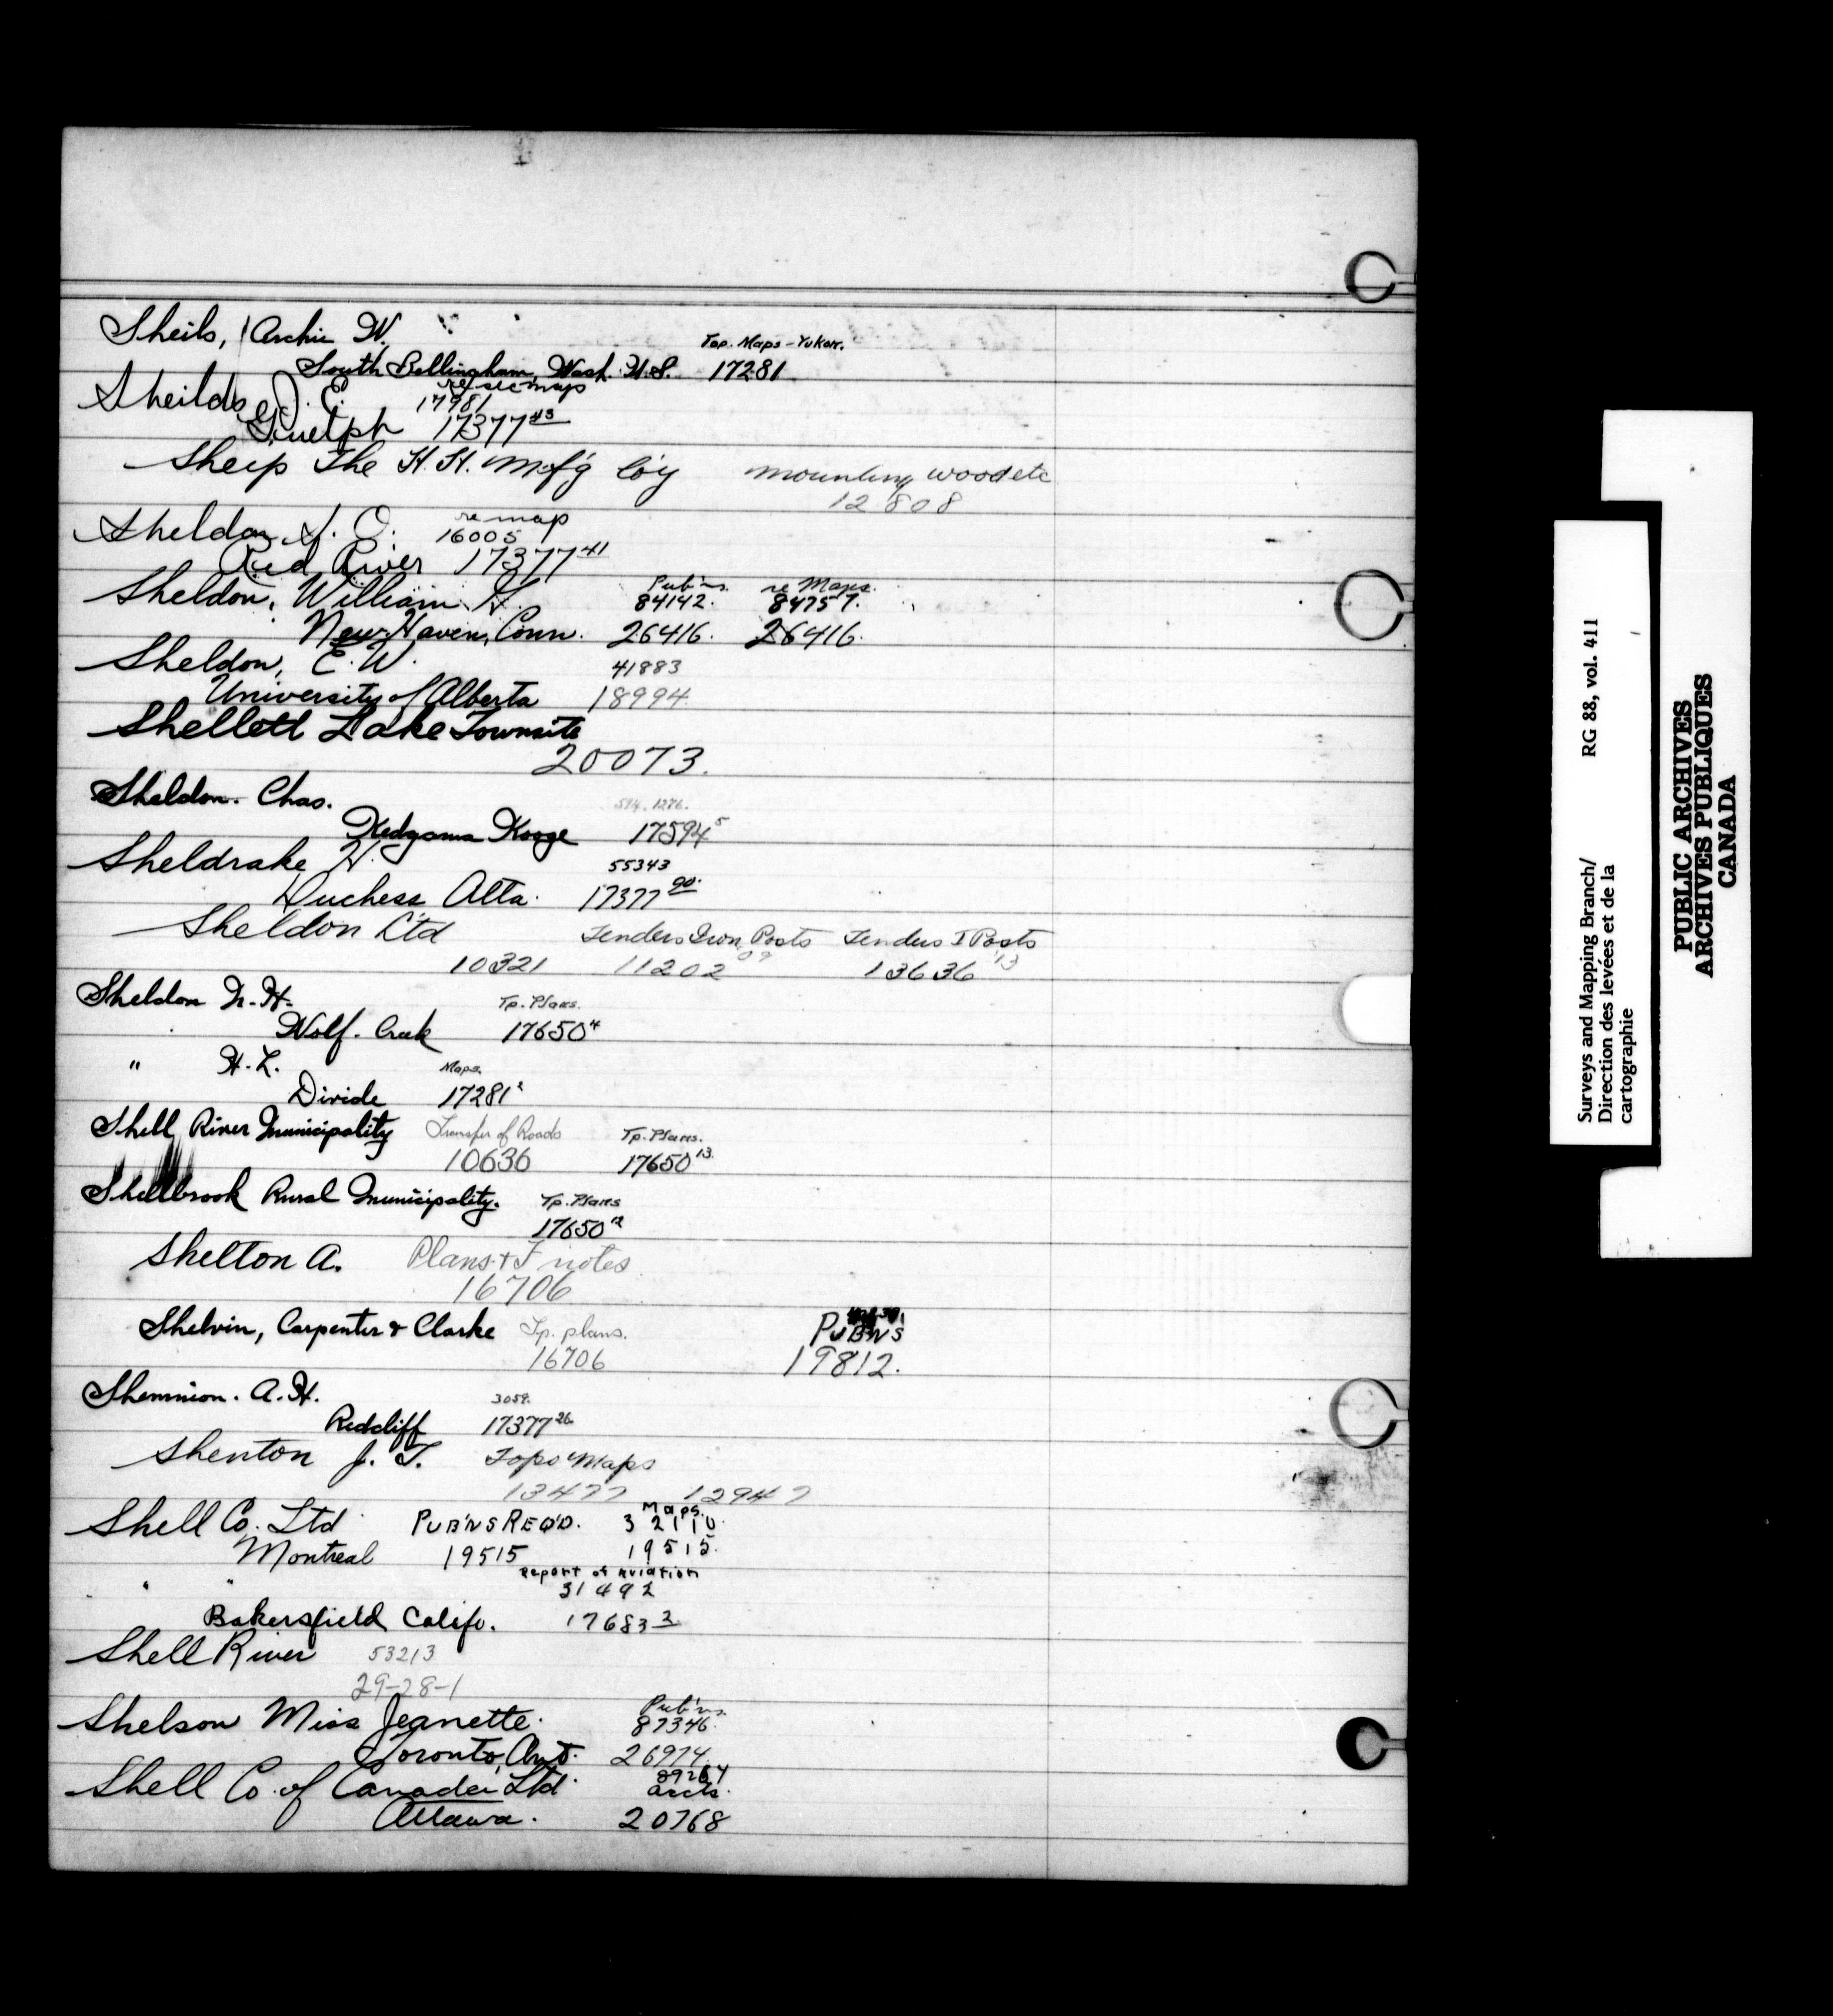 Sheils, Archie W. Top. Maps - Yukon.
South Bellingham, Wash. U.S. 17281
Sheilds, J. E. re sec map 17981
Guelph 17377 43
Sheip The H. H. Mf'g Co'y mounting wood etc
12808
Sheldon, J. O. re map 16005
Red River 17377 41
Sheldon, William H. Pub'ns. 84142. re Maps. 84757.
New Haven, Conn. 26416. 26416.
Sheldon, E. W. 41883
University of Alberta 18994
Shellett Lake Townsite
20073.
Sheldon. Chas. 594. 1276.
17594 5
Sheldrake H. 55343
Duchess Alta. 17377 90.
Sheldon Ltd Tenders Iron Posts 09 Tenders I Posts '13
10321 11202 13636
Sheldon N. H. Tp. Plans.
Wolf. Creek 17650 4
" H. L. Maps.
Divide 17281 2
Shell River Municipality Transfer of Roads Tp. Plans.
10636 17650 13.
Shellbrook Rural Municipality. Tp. Plans
17650 12
Shelton A. Plans + F notes
16706
Shelvin, Carpenter & Clarke Tp. plans. PUB'NS
16706 19812.
Shemnion. A. H. 3059.
Redcliff 17377 26.
Shenton J. T. Topo Maps
13477 12947
Shell Co. Ltd PUB'NS REQ'D. Maps. 32110.
Montreal 19515 19515.
" " Report of Aviation 31492
Bakersfield Calif. 17683 3
Shell River 53213
29-28-1
Shelson Miss Jeanette. Pub'ns. 87346.
Toronto, Ont. 26974.
Shell Co. of Canada Ltd. 89264 accts.
Ottawa. 20768
Surveys and Mapping Branch/ RG 88, vol. 411
Direction des levées et de la
cartographie
PUBLIC ARCHIVES
ARCHIVES PUBLIQUES
CANADA